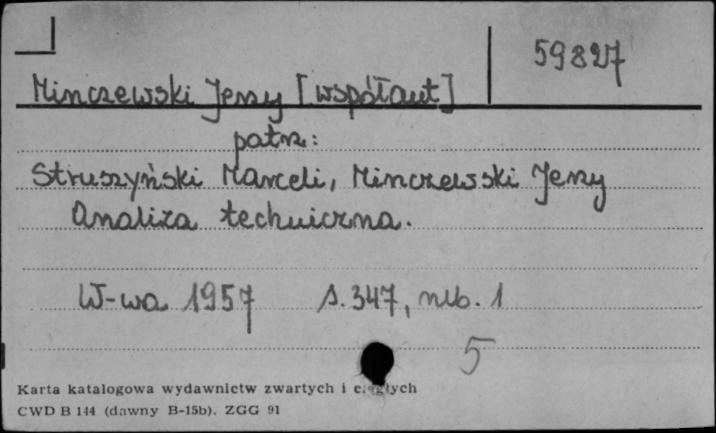 59827
Minczewski Jerzy [współaut]
patrz:
Struszyński Marceli, Minczewski Jerzy
Analiza techniczna.
W-wa 1957 s. 347, nlb. 1
5
Karta katalogowa wydawnictw zwartych i ciągłych
CWD B 144 (dawny B-15b). ZGG 91